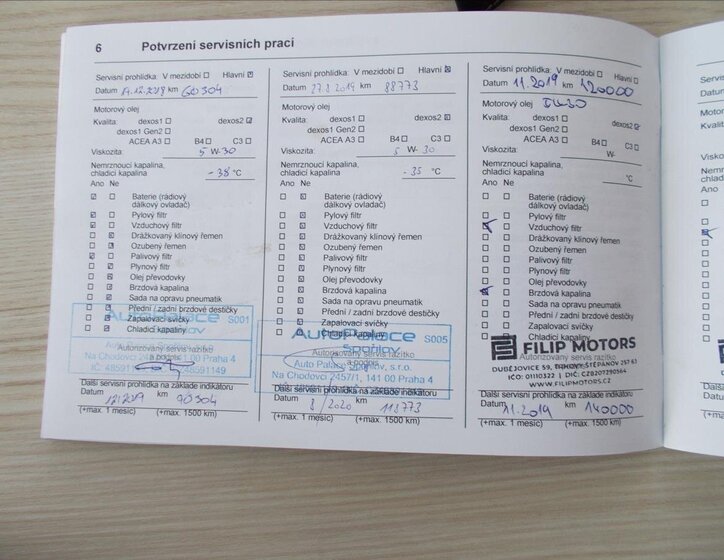 6 Potvrzení servisních prací
Servisní prohlídka: V mezidobí ☐ Hlavní ☒
Datum 17.12.2018 km 60304
Motorový olej
Kvalita: dexos1 ☐ dexos2 ☑
dexos1 Gen2 ☐
ACEA A3 ☐ B4 ☐ C3 ☐
Viskozita: 5 W- 30
Nemrznoucí kapalina,
chladicí kapalina - 38 °C
Ano Ne
Baterie (rádiový
dálkový ovladač)
Pylový filtr
Vzduchový filtr
Drážkovaný klínový řemen
Ozubený řemen
Palivový filtr
Plynový filtr
Olej převodovky
Brzdová kapalina
Sada na opravu pneumatik
Přední / zadní brzdové destičky
Zapalovací svíčky
Chladicí kapaliny
AutoPalace S001
Spořilov
Autorizovaný servis razítko
a podpis
Na Chodovci 1 00 Praha 4
48591149
Další servisní prohlídka na základě indikátoru
Datum km 90304
(+max. 1 měsíc) (+max. 1500 km)
Servisní prohlídka: V mezidobí ☐ Hlavní ☒
Datum 27.8.2019 km 88773
Motorový olej
Kvalita: dexos1 ☐ dexos2 ☑
dexos1 Gen2 ☐
ACEA A3 ☐ B4 ☐ C3 ☐
Viskozita: 5 W- 30
Nemrznoucí kapalina,
chladicí kapalina - 35 °C
Ano Ne
Baterie (rádiový
dálkový ovladač)
Pylový filtr
Vzduchový filtr
Drážkovaný klínový řemen
Ozubený řemen
Palivový filtr
Plynový filtr
Olej převodovky
Brzdová kapalina
Sada na opravu pneumatik
Přední / zadní brzdové destičky
Zapalovací svíčky
Chladicí kapaliny
AutoPalace S005
Spořilov
Autorizovaný servis razítko
a podpis
Auto Palace Spořilov, s.r.o.
Na Chodovci 2457/1, 141 00 Praha 4
Další servisní prohlídka na základě indikátoru
Datum 8/2020 km 118773
(+max. 1 měsíc) (+max. 1500 km)
Servisní prohlídka: V mezidobí ☐ Hlavní ☐
Datum 11.2019 km 120000
Motorový olej 5W30
Kvalita: dexos1 ☐ dexos2 ☑
dexos1 Gen2 ☐
ACEA A3 ☐ B4 ☐ C3 ☐
Viskozita: W-
Nemrznoucí kapalina,
chladicí kapalina °C
Ano Ne
Baterie (rádiový
dálkový ovladač)
Pylový filtr
Vzduchový filtr
Drážkovaný klínový řemen
Ozubený řemen
Palivový filtr
Plynový filtr
Olej převodovky
Brzdová kapalina
Sada na opravu pneumatik
Přední / zadní brzdové destičky
Zapalovací svíčky
Chladicí kapaliny
FILIP MOTORS
Autorizovaný servis razítko
IČO: 01110322 | DIČ: CZ8207290564
WWW.FILIPMOTORS.CZ
Další servisní prohlídka na základě indikátoru
Datum 11.2019 km 140000
(+max. 1 měsíc) (+max. 1500 km)